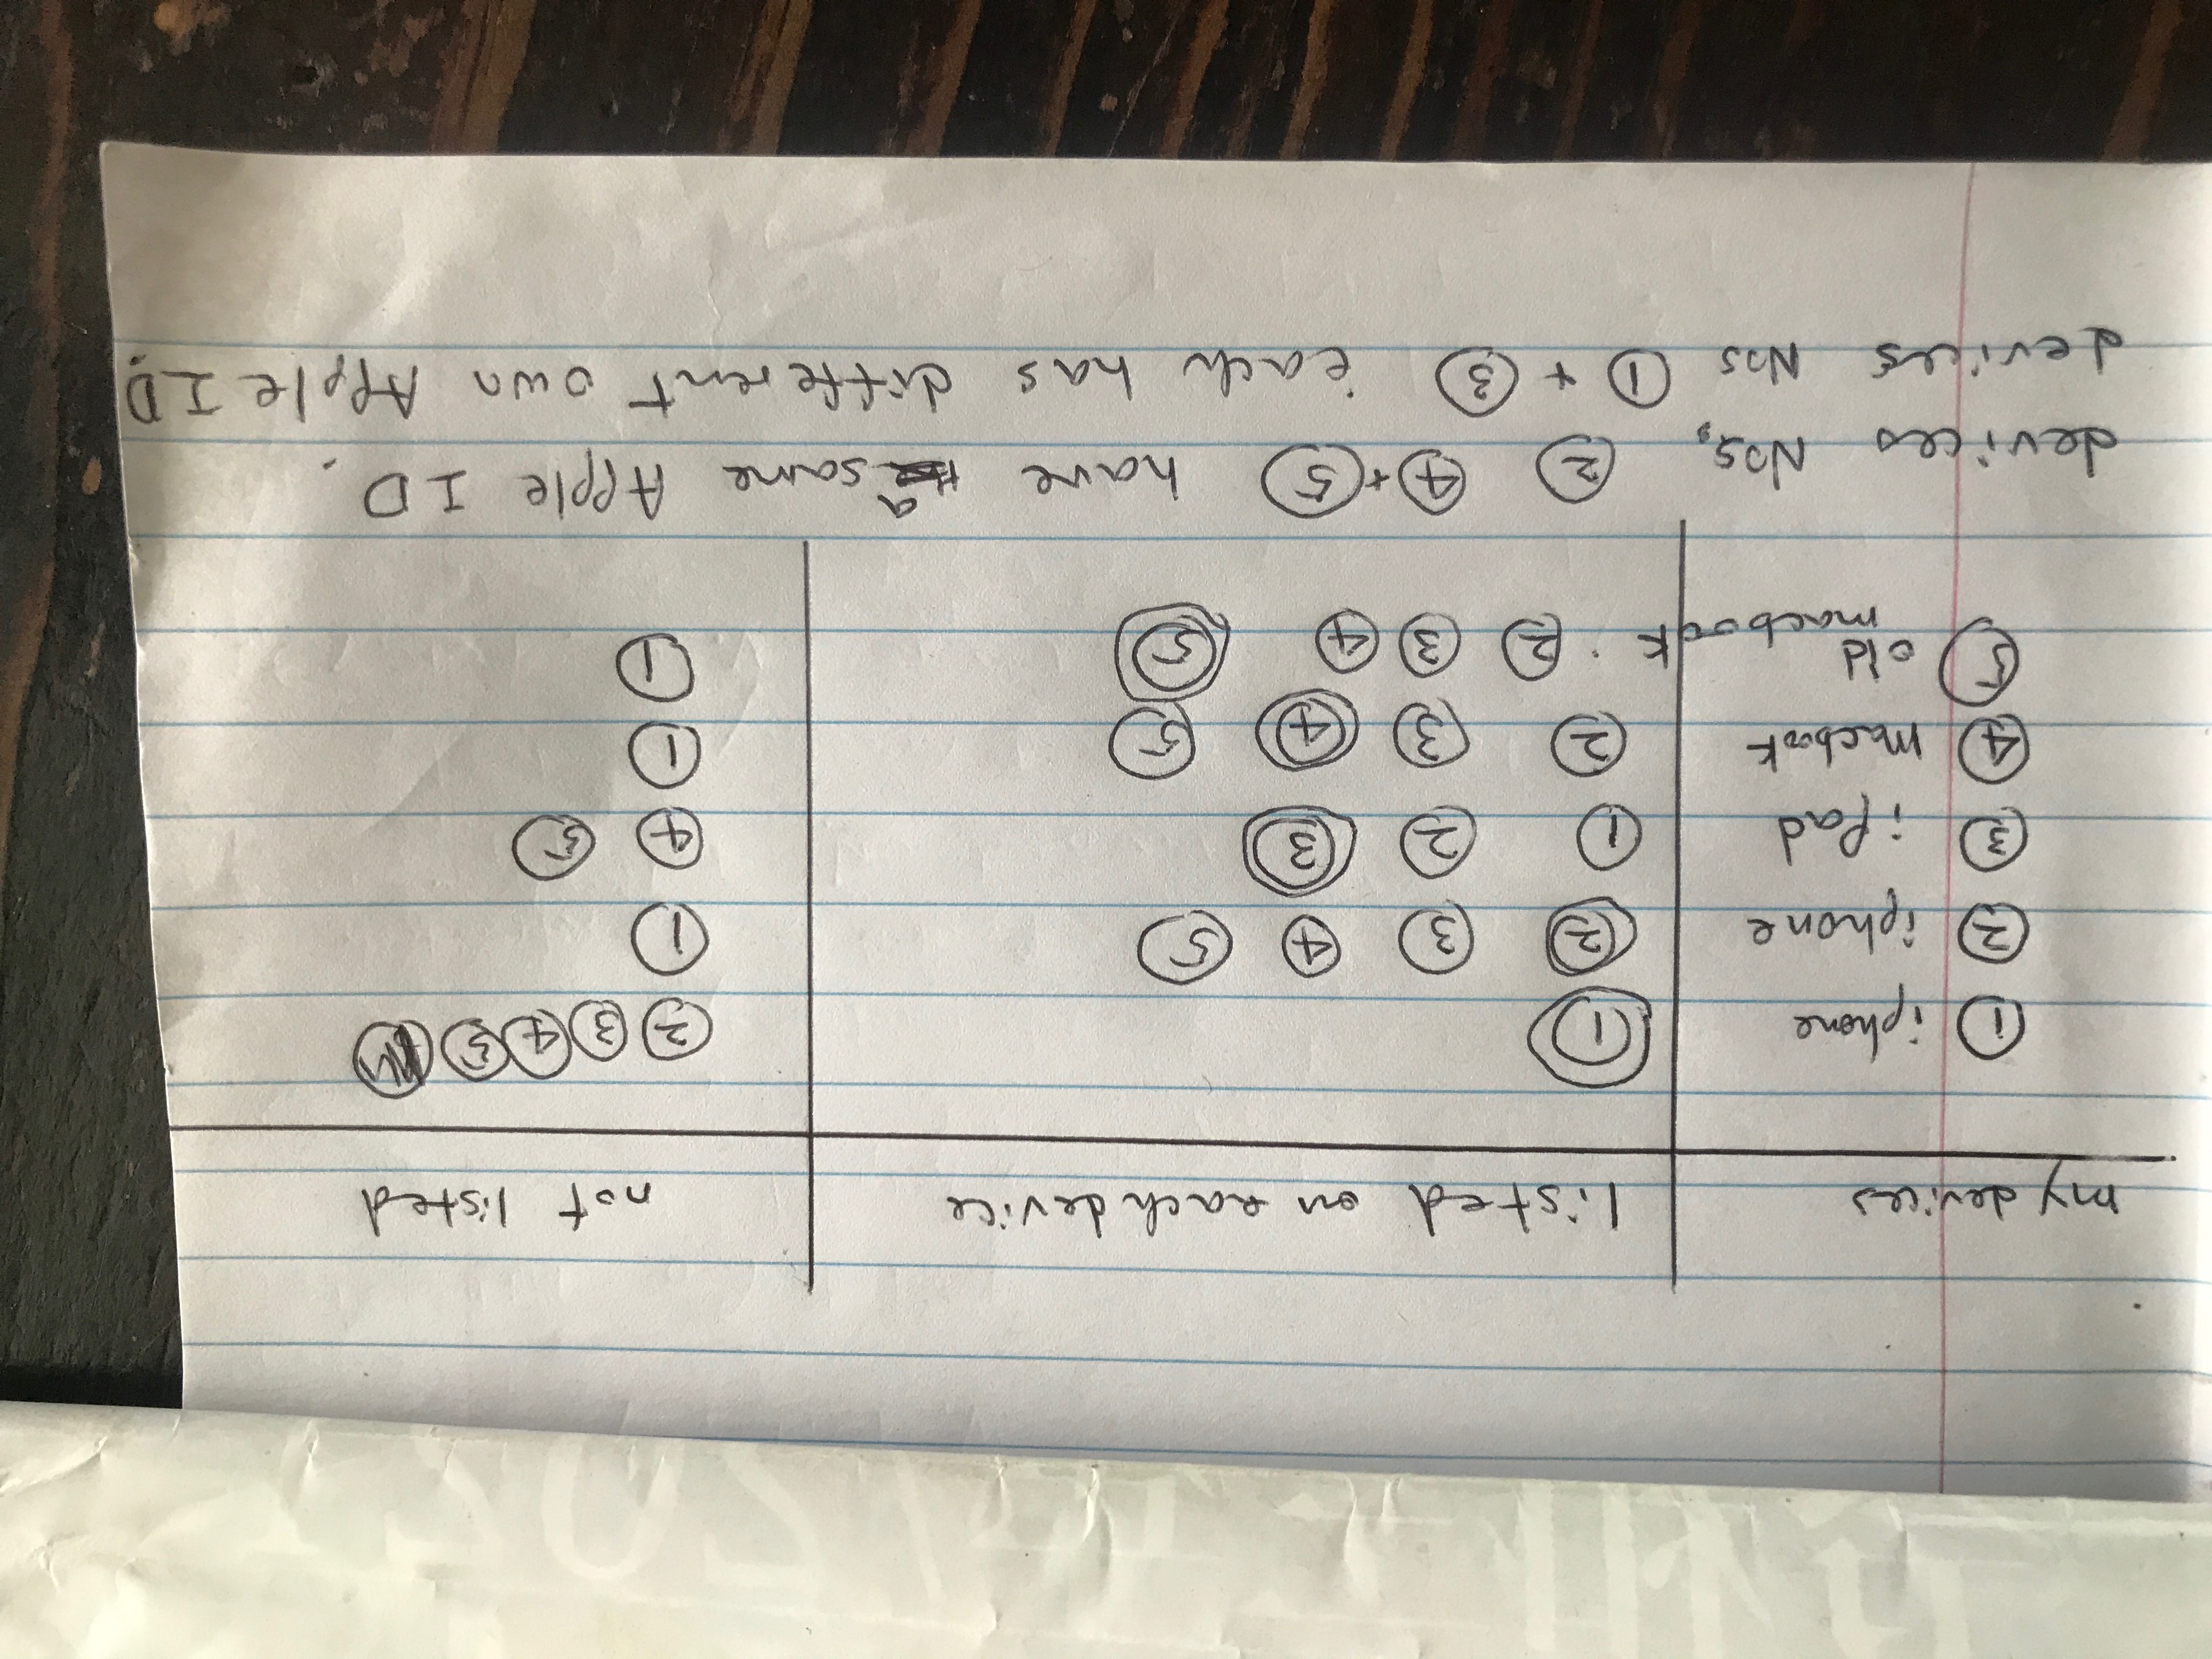 my devices listed on each device not listed
① iphone ① ② ③ ④ ⑤
② iphone ② ③ ④ ⑤ ①
③ iPad ① ② ③ ④ ⑤
④ Macbook ② ③ ④ ⑤ ①
⑤ old macbook. ② ③ ④ ⑤ ①
devices Nos, ② ④+⑤ have a same Apple ID.
devices Nos ① + ③ each has different own Apple ID.